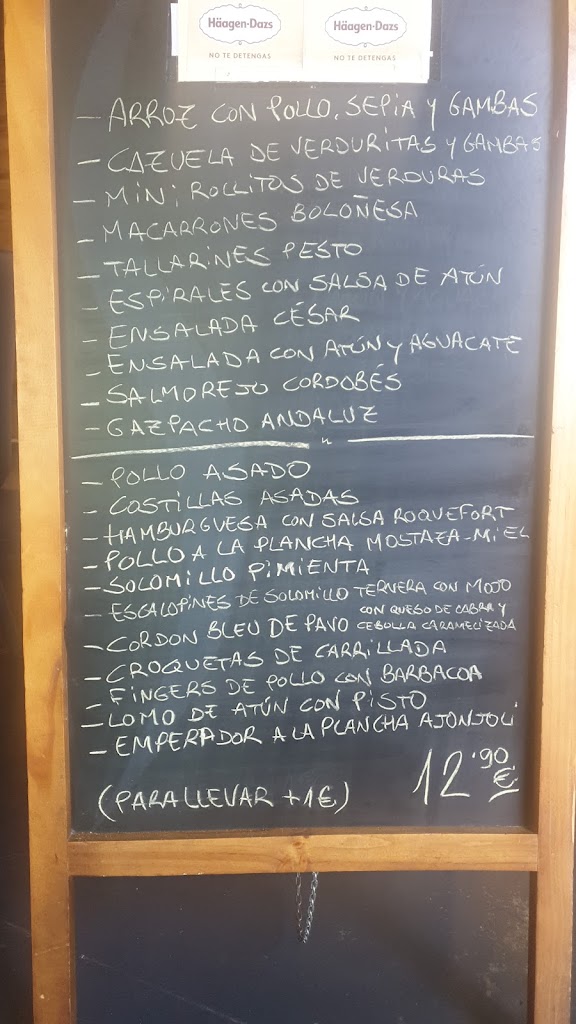 Häagen-Dazs Häagen-Dazs
NO TE DETENGAS NO TE DETENGAS
- ARROZ CON POLLO, SEPIA Y GAMBAS
- CAZUELA DE VERDURITAS Y GAMBAS
- MINI ROLLITOS DE VERDURAS
- MACARRONES BOLOÑESA
- TALLARINES PESTO
- ESPIRALES CON SALSA DE ATÚN
- ENSALADA CÉSAR
- ENSALADA CON ATÚN Y AGUACATE
- SALMOREJO CORDOBÉS
- GAZPACHO ANDALUZ
- POLLO ASADO
- COSTILLAS ASADAS
- HAMBURGUESA CON SALSA ROQUEFORT
- POLLO A LA PLANCHA MOSTAZA-MIEL
- SOLOMILLO PIMIENTA
- ESCALOPINES DE SOLOMILLO TERNERA CON MOJO
- CORDON BLEU DE PAVO CON QUESO DE CABRA Y
CEBOLLA CARAMELIZADA
- CROQUETAS DE CARRILLADA
- FINGERS DE POLLO CON BARBACOA
- LOMO DE ATÚN CON PISTO
- EMPERADOR A LA PLANCHA AJONJOLÍ
(PARA LLEVAR +1€) 12'90 €